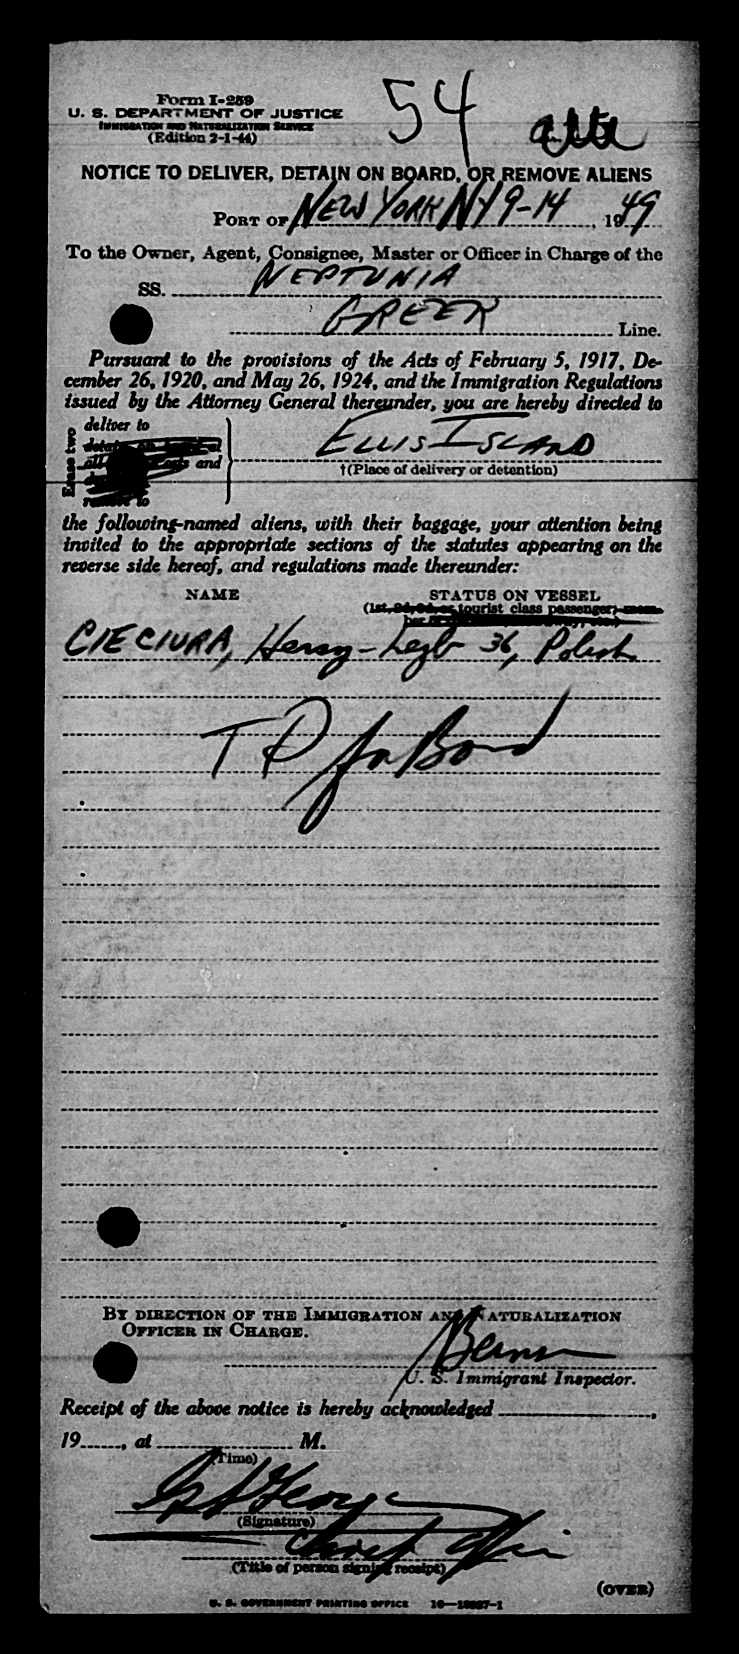 Form I-259
U. S. DEPARTMENT OF JUSTICE
IMMIGRATION AND NATURALIZATION SERVICE
(Edition 2-1-44)
54
NOTICE TO DELIVER, DETAIN ON BOARD, OR REMOVE ALIENS
PORT OF NEW YORK NY 9-14, 1949
To the Owner, Agent, Consignee, Master or Officer in Charge of the
SS. NEPTUNIA
GREEK Line.
Pursuant to the provisions of the Acts of February 5, 1917, De-
cember 26, 1920, and May 26, 1924, and the Immigration Regulations
issued by the Attorney General thereunder, you are hereby directed to
Erase two
deliver to
ELLIS ISLAND
and
†(Place of delivery or detention)
the following-named aliens, with their baggage, your attention being
invited to the appropriate sections of the statutes appearing on the
reverse side hereof, and regulations made thereunder:
NAME STATUS ON VESSEL
(1st, 2d, 3d, or tourist class passenger,
CIECIURA, 36, Polish
BY DIRECTION OF THE IMMIGRATION AND NATURALIZATION
OFFICER IN CHARGE.
U. S. Immigrant Inspector.
Receipt of the above notice is hereby acknowledged
19, at M.
(Time)
(Signature)
(Title of person signing receipt)
(OVER)
U. S. GOVERNMENT PRINTING OFFICE